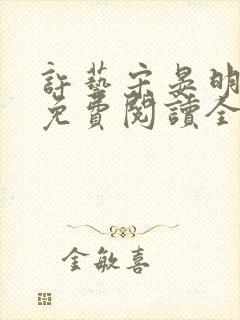 許藝宋晏明
免費閱讀全
金敏喜